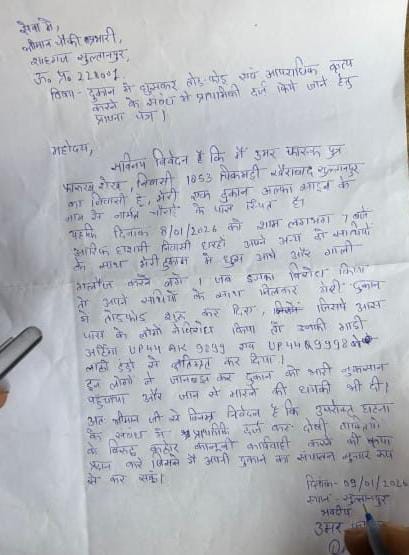 सेवा में,
श्रीमान चौकी प्रभारी,
शाहगंज सुल्तानपुर,
उ० प्र० 228001
विषय- दुकान में घुसकर तोड़-फोड़ एवं आपराधिक कृत्य
करने के संबंध में प्राथमिकी दर्ज किये जाने हेतु
प्रार्थना पत्र।
महोदय,
सविनय निवेदन है कि मैं उमर फारूक पुत्र
फारूख शेख, निवासी 1053 खैराबाद सुल्तानपुर
का निवासी है, मेरी एक दुकान अल्फा के
नाम से चौराहे के पास स्थित है।
यहकि दिनांक 8/01/2026 को शाम लगभग 7 बजे
आरिफ हाशमी निवासी अपने अन्य दो साथियों
के साथ मेरी दुकान में घुस आये और गाली
गलौज करने लगे। जब इनका विरोध किया
तो अपने साथियों के साथ मिलकर मेरी दुकान
में तोड़फोड़ शुरू कर दिया, जिसमें आस
पास के लोगों ने विरोध किया तो उनकी गाड़ी
UP44 AK 9899 एवं UP44 9998 को
लाठी डंडो से क्षतिग्रस्त कर दिया।
इन लोगों ने जानबूझ कर दुकान को भारी नुकसान
पहुंचाया और जान से मारने की धमकी भी दी।
अतः श्रीमान जी से विनम्र निवेदन है कि उपरोक्त घटना
के संबंध में प्राथमिकि दर्ज कर दोषी
के विरुद्ध कठोर कानूनी कार्यवाही करने की कृपा
करें जिससे मैं अपनी दुकान का संचालन सुचारू रूप
से कर सकूं।
दिनांक- 09/01/2026
स्थान- सुल्तानपुर
उमर